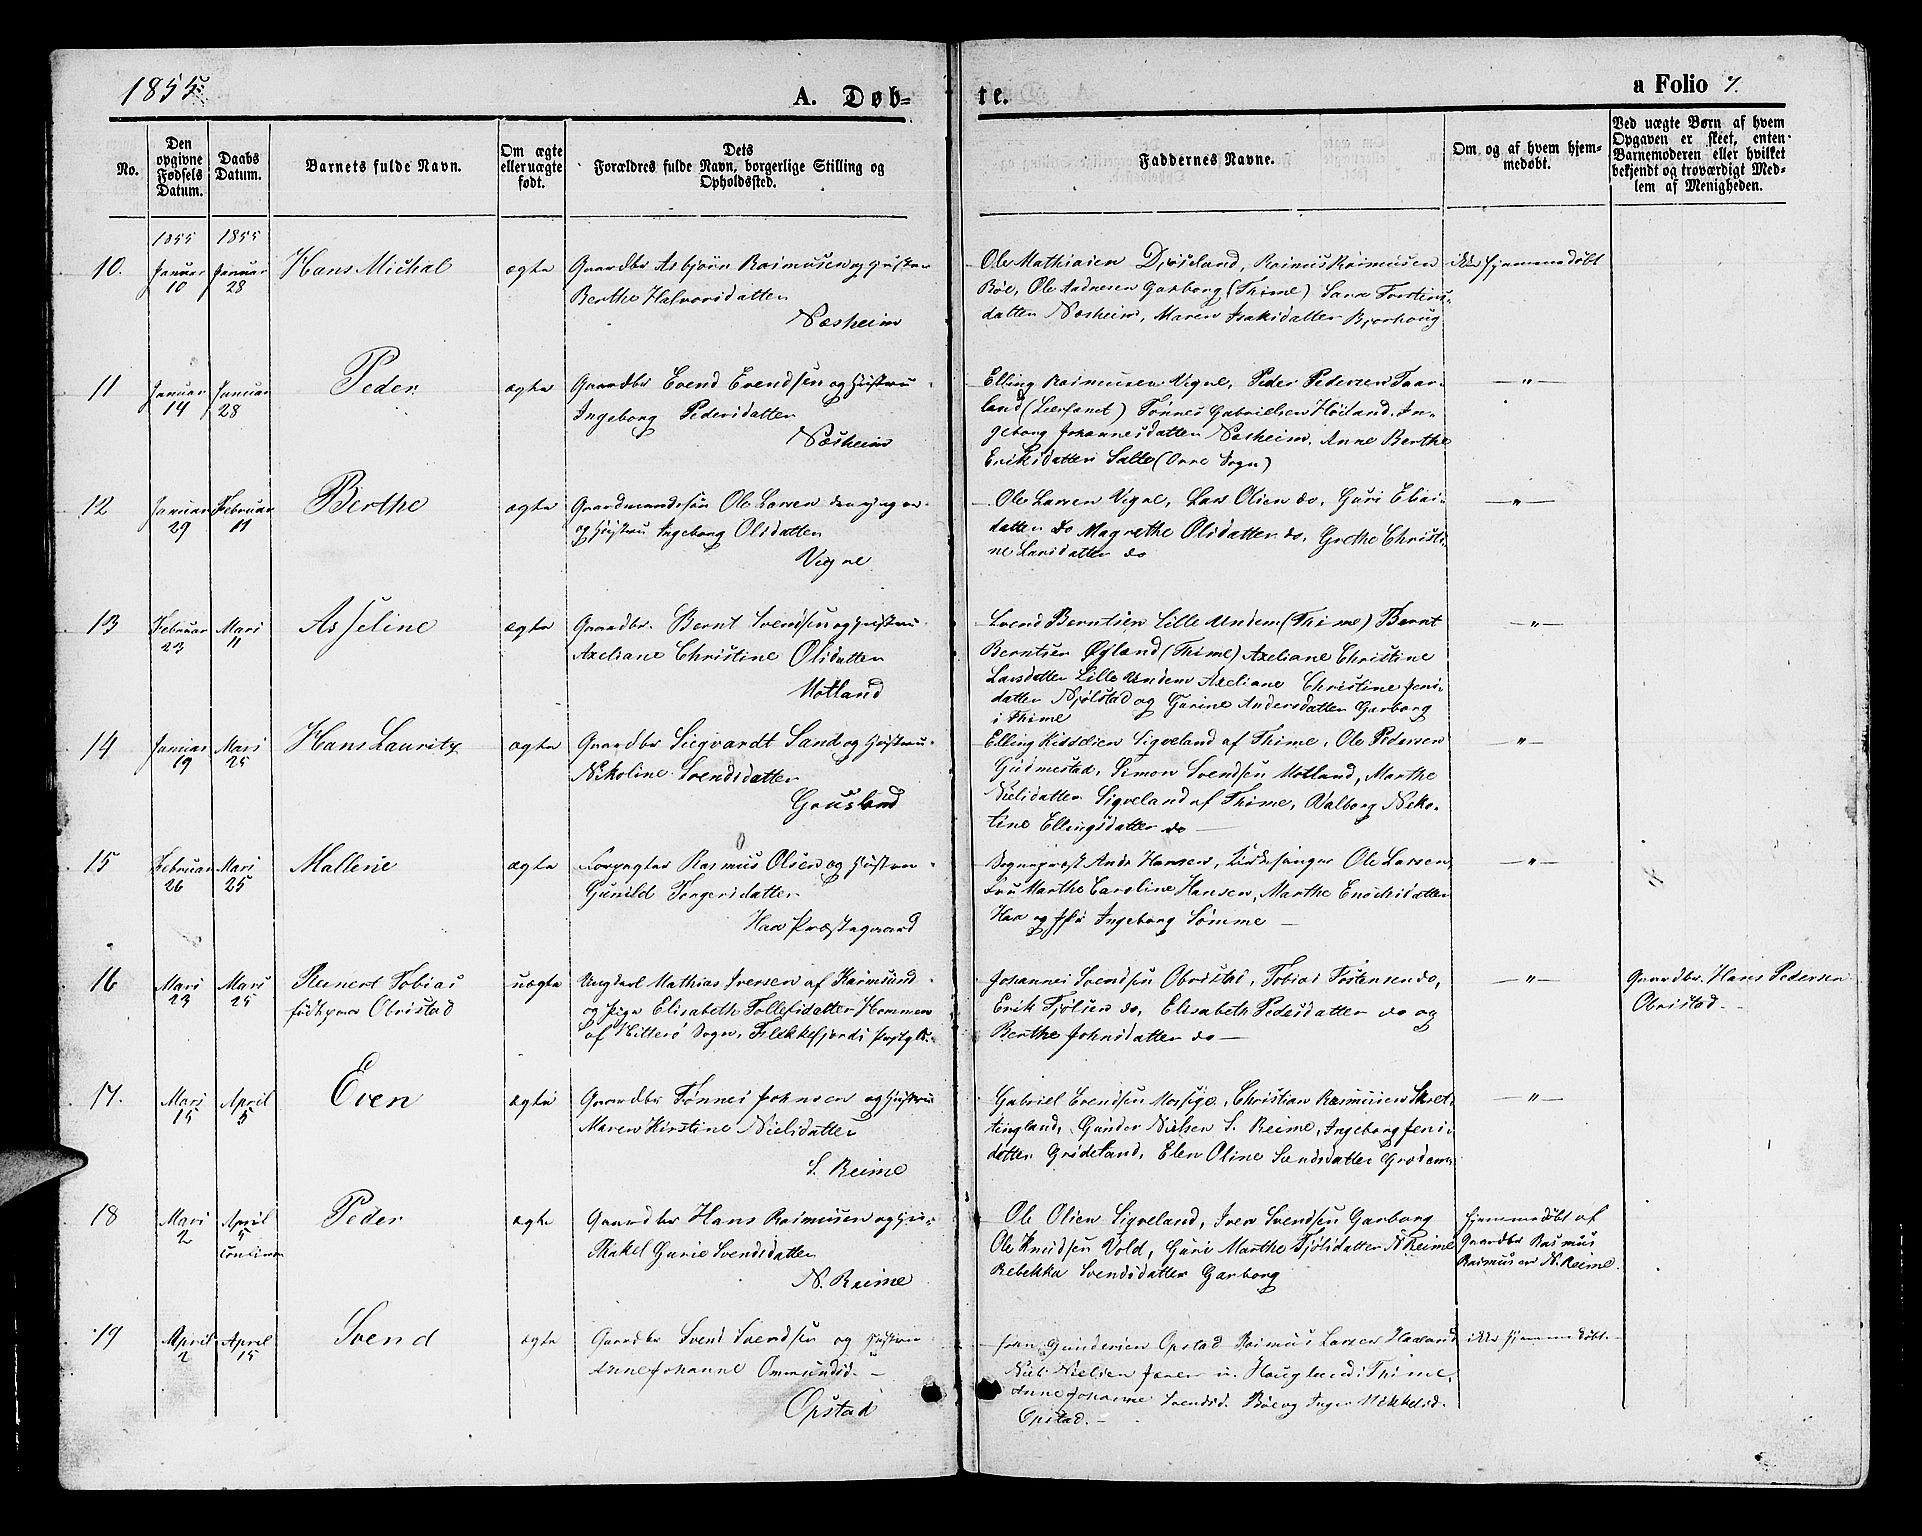 1855
A. Døb-
te.
a Folio 7.
No.
Den opgivne Fødsels Datum.
Daabs Datum.
Barnets fulde Navn.
Om ægte eller uægte født.
Dets Forældres fulde Navn, borgerlige Stilling og Opholdssted.
Faddernes Navne.
Om og af hvem hjemmedøbt.
Ved uægte Børn af hvem Opgaven er skeet, enten Barnemoderen eller hvilket bekjendt og troværdigt Medlem af Menigheden.
1855 1855
10. Januar 10 Januar 28 Hans Michal ægte
Gaardbr Asbjørn Rasmusen og Hustru
Berthe Halvorsdatter
Næsheim
Ole Mathiasen Djøseland, Rasmus Rasmusen
Bøe, Ole Aadnesen Garborg (Thime) Sara Torstens-
datter Næsheim, Maren Isaksdatter Bjorhoug
ikke hjemmedøbt
11 Januar 14 Januar 28 Peder ægte
Gaardbr Evend Evendsen og Hustru
Ingeborg Pedersdatter
Næsheim
Elling Rasmusen Vigre, Peder Pedersen Taar-
land (Lærfanet) Tønnes Gabrielsen Høiland, In-
geborg Johannesdatter Næsheim, Anne Berthe
Eriksdatter Salte (Orre Sogn)
— " —
12 Januar 29 Februar 11 Berthe ægte
Gaardmandssøn Ole Larsen den yngre
og Hustru Ingeborg Olsdatter
Vigre
Ole Larsen Vigre, Lars Olsen do, Guri Elias-
datter do Magrethe Olsdatter do, Grethe Christi-
ne Larsdatter do
" —
13 Februar 23 Mars 11 Asseline ægte
Gaardbr. Bernt Svendsen og Hustru
Axeliane Christine Olsdatter
Motland
Svend Berntsen Lille Undem (Thime) Bernt
Berntsen Øgland (Thime) Axeliane Christine
Larsdatter Lille Undem Axeliane Christine Jens-
datter Njølstad og Gurine Andersdatter Garborg
i Thime
— " —
14 Januar 19 Mars 25 Hans Lauritz ægte
Gaardbr Siegvardt Sand og Hustru
Nikoline Svendsdatter
Grusland
Elling Kidelsen Sigveland af Thime, Ole Pedersen
Gudmestad, Simon Svendsen Motland, Marthe
Nielsdatter Sigveland af Thime, Valborg Niko-
line Ellingsdatter do —
— " —
15 Februar 26 Mars 25 Mallene ægte
Forpagter Rasmus Olsen og Hustru
Gunild Torgersdatter
Haa Præstegaard
Sognepræst Andr Hansen, Kirkesanger Ole Larsen,
Fru Marthe Caroline Hansen, Marthe Enochsdatter
Haa og Jfr Ingeborg Sømme —
— " —
16 Mars 23 Mars 25 Reinert Tobias
født paa Obristad
uægte
Ungkarl Mathias Iversen af Karmsund
og Pige Elisabeth Tollefsdatter Hommen
af Hitterø Sogn, Flekkefjords Prstgld.
Johannes Svendsen Obristad, Tobias Tostensen do,
Erik Tjølsen do, Elisabeth Pedersdatter do og
Berthe Johnsdatter do —
— " —
Gaardbr. Hans Pedersen
Obristad. —
17. Mars 15 April 5 Even ægte
Gaardbr Tønnes Johnsen og Hustru
Maren Kirstine Nielsdatter
S. Reime
Gabriel Evendsen Mossige, Christian Rasmusen Skret-
tingland, Gunder Nielsen S. Reime, Ingeborg Jens-
datter Grødeland, Elen Oline Svendsdatter Grødem
— " —
18 Mars 2 April 5 Peder ægte
Gaardbr Hans Rasmusen og Hu-
Rakel Gurie Svendsdatter
N. Reime
Ole Olsen Sigveland, Iver Svendsen Garborg
Ole Knudsen Vold, Guri Marthe Tjølsdatter N Reime
Rebekka Svendsdatter Garborg
hjemmedøbt af
Gaardbr Rasmus
Rasmusen N. Reime.
19 April 2 April 15 Svend ægte
Gaardbr Svend Svendsen og Hustru
Anne Johanne Ommundsd. —
Opstad
Gundersen Opstad Rasmus Larsen Haaland
Niels Nielsen Hougland i Thime,
Anne Johanne Svendsd. Bø og Inger Mikkelsd.
Opstad. —
ikke hjemmedøbt.